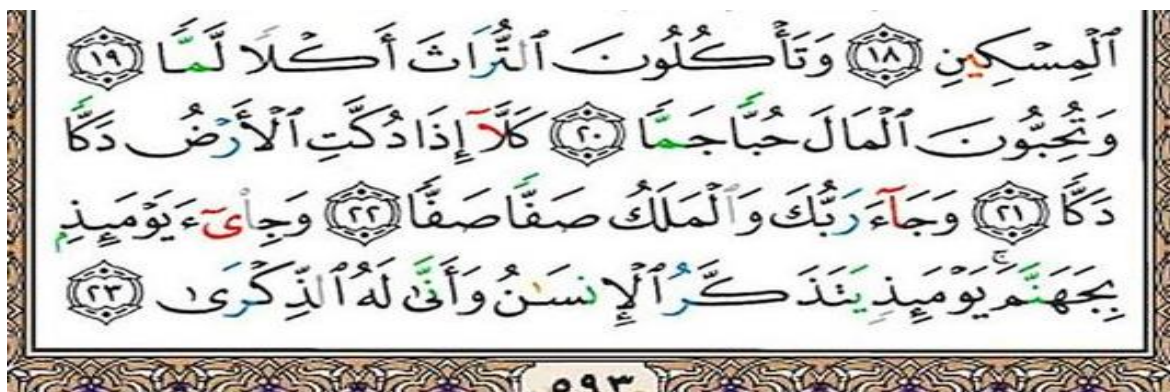 ٱلْمِسْكِينِ ١٨ وَتَأْكُلُونَ ٱلتُّرَاثَ أَكْلًا لَّمًّا ١٩
وَتُحِبُّونَ ٱلْمَالَ حُبًّا جَمًّا ٢٠ كَلَّآ إِذَا دُكَّتِ ٱلْأَرْضُ دَكًّا
دَكًّا ٢١ وَجَآءَ رَبُّكَ وَٱلْمَلَكُ صَفًّا صَفًّا ٢٢ وَجِا۟ىٓءَ يَوْمَئِذِۭ
بِجَهَنَّمَ ۚ يَوْمَئِذٍ يَتَذَكَّرُ ٱلْإِنسَٰنُ وَأَنَّىٰ لَهُ ٱلذِّكْرَىٰ ٢٣
٥٩٣